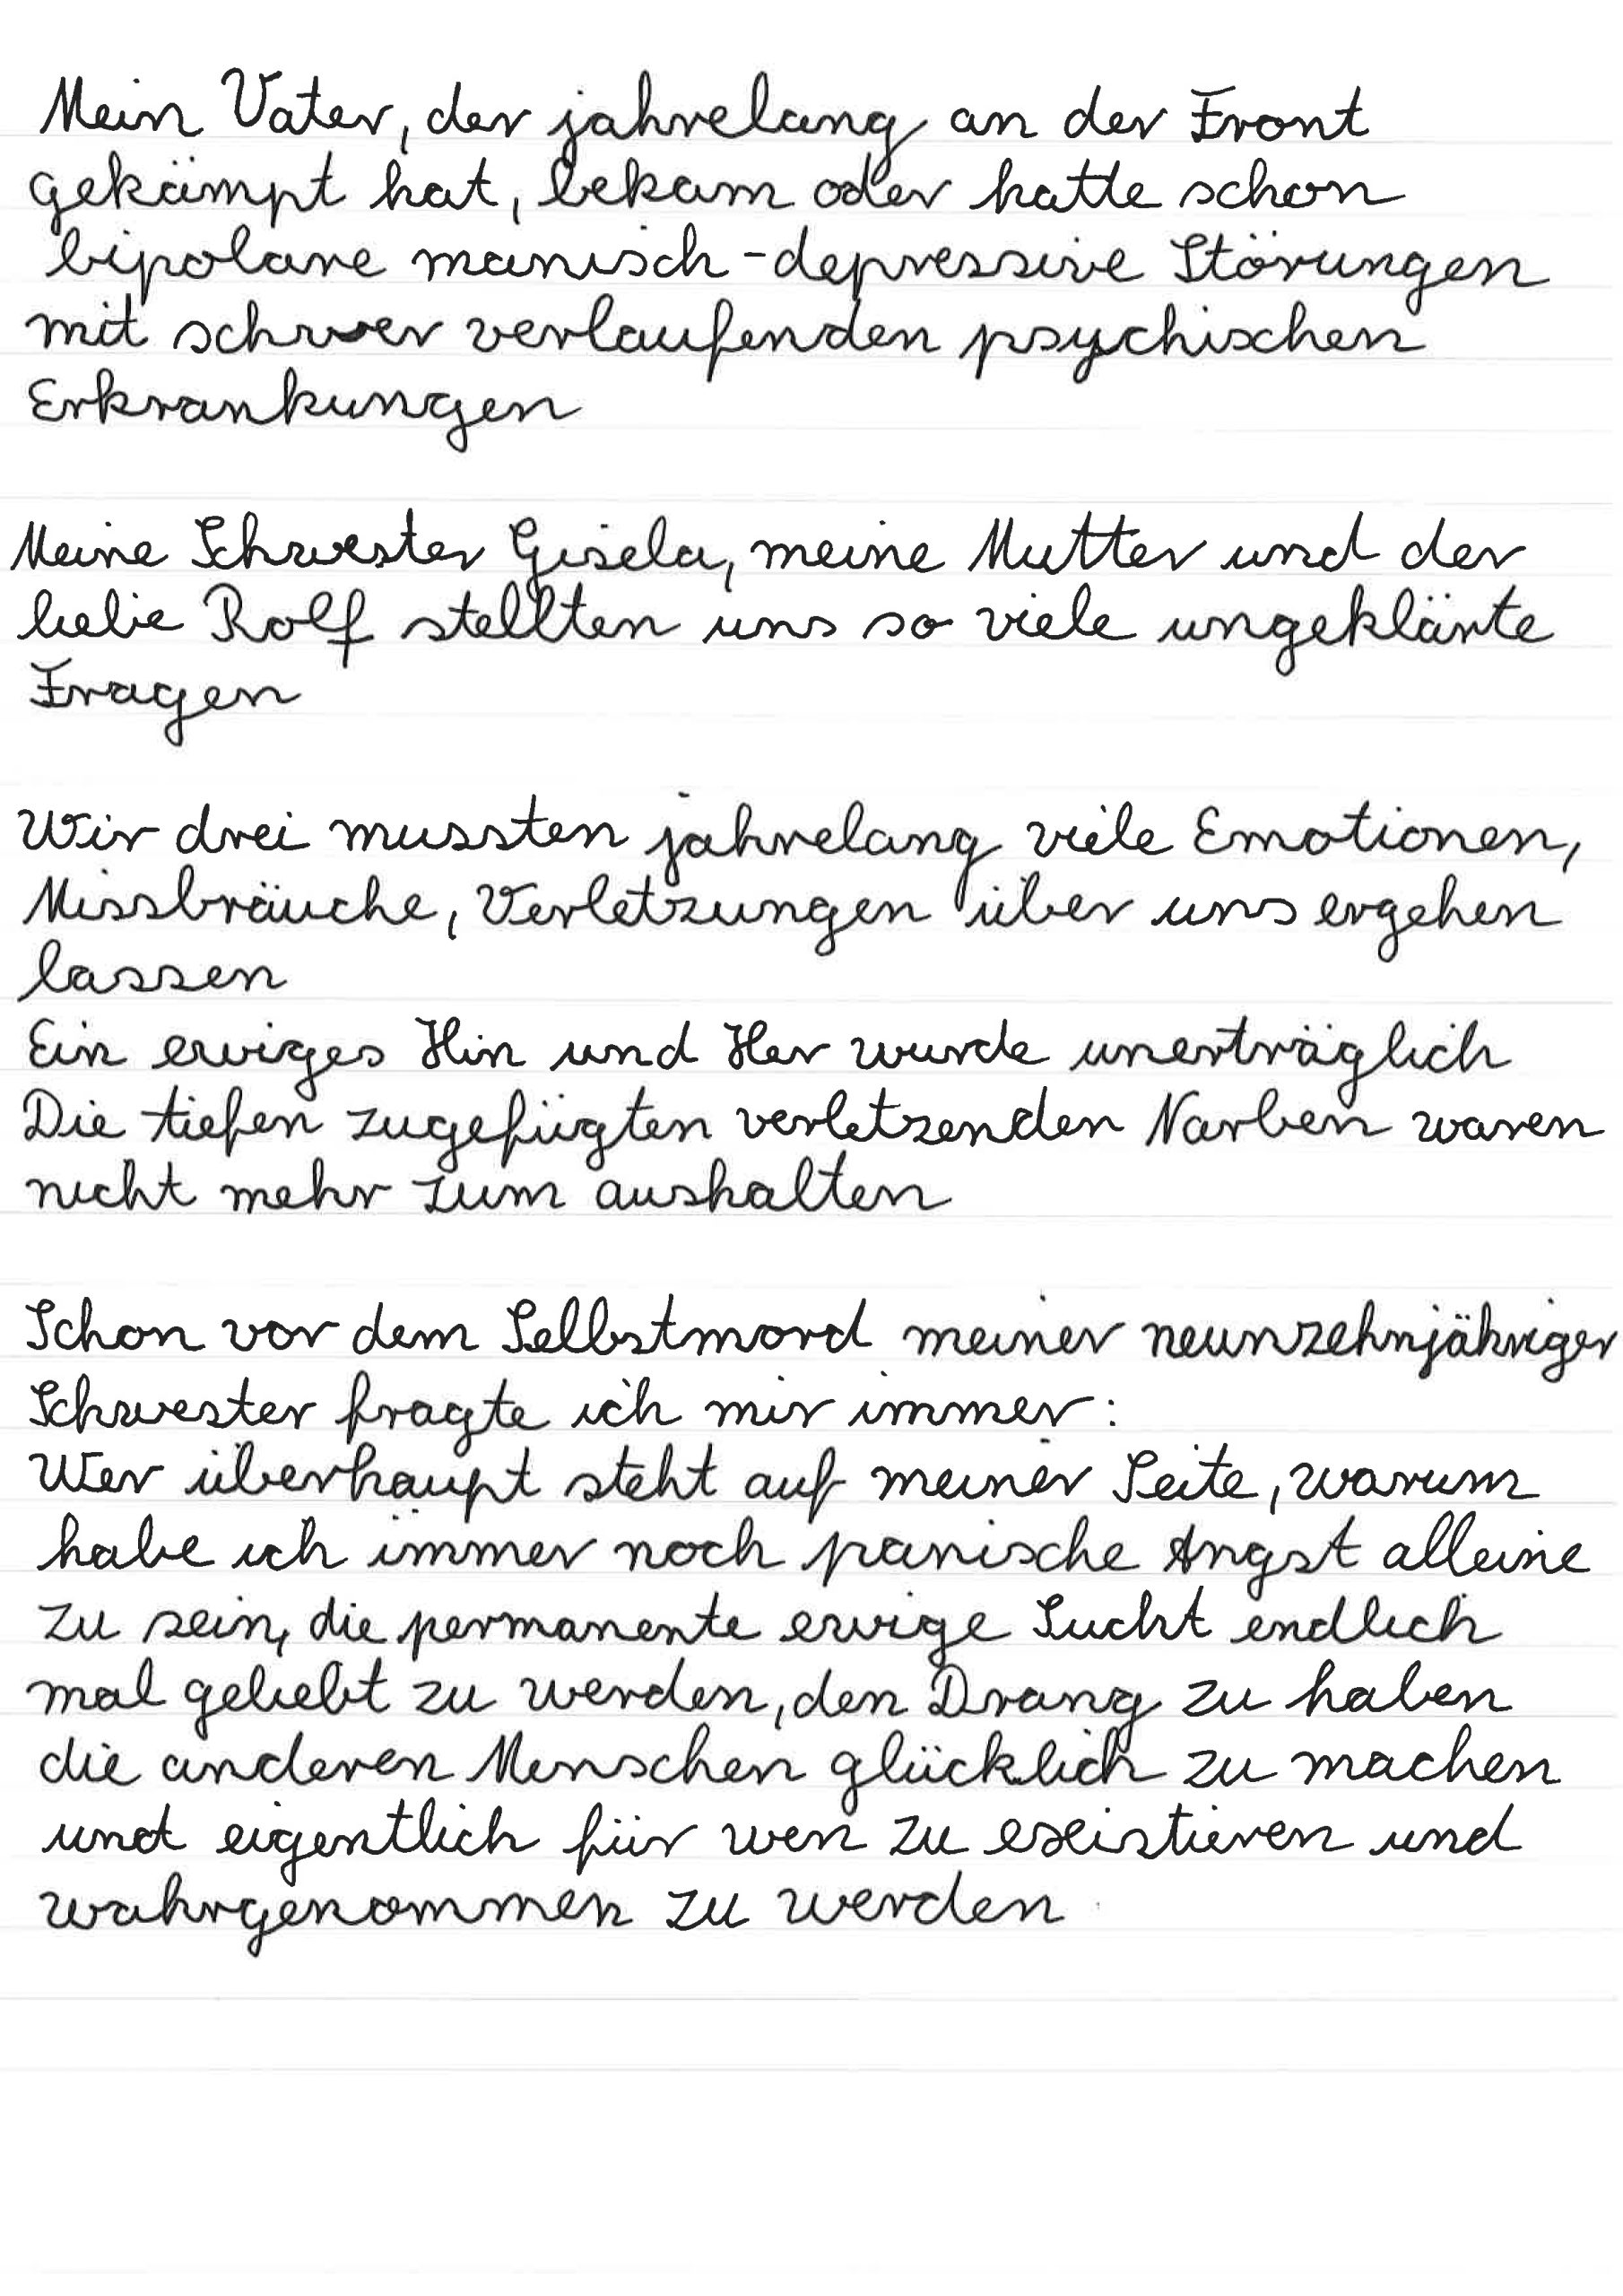 Mein Vater, der jahrelang an der Front
gekämpt hat, bekam oder hatte schon
bipolare manisch-depressive Störungen
mit schwer verlaufenden psychischen
Erkrankungen
Meine Schwester Gisela, meine Mutter und der
liebe Rolf stellten uns so viele ungeklärte
Fragen
Wir drei mussten jahrelang viele Emotionen,
Missbräuche, Verletzungen über uns ergehen
lassen
Ein ewiges Hin und Her wurde unerträglich
Die tiefen zugefügten verletzenden Narben waren
nicht mehr zum aushalten
Schon vor dem Selbstmord meiner neunzehnjähriger
Schwester fragte ich mir immer:
Wer überhaupt steht auf meiner Seite, warum
habe ich immer noch panische Angst alleine
zu sein, die permanente ewige Sucht endlich
mal geliebt zu werden, den Drang zu haben
die anderen Menschen glücklich zu machen
und eigentlich für wen zu exeistieren und
wahrgenommen zu werden